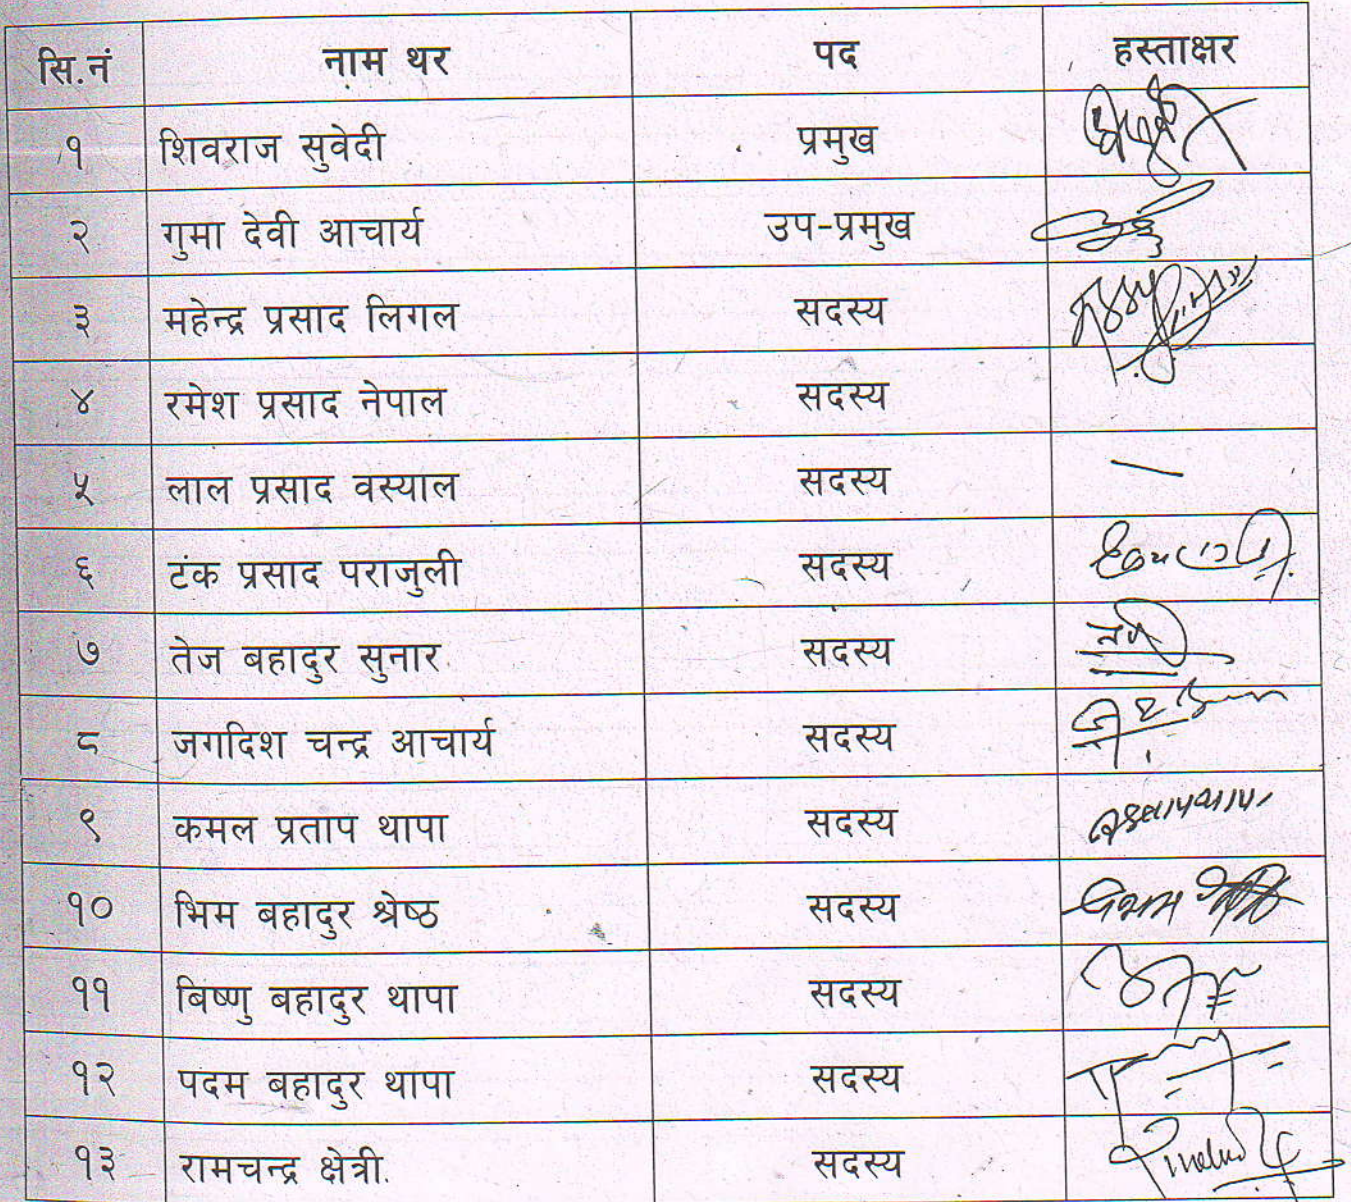 सि.नं नाम थर पद हस्ताक्षर
१ शिवराज सुवेदी प्रमुख
२ गुमा देवी आचार्य उप-प्रमुख
३ महेन्द्र प्रसाद लिगल सदस्य
४ रमेश प्रसाद नेपाल सदस्य
५ लाल प्रसाद वस्याल सदस्य
६ टंक प्रसाद पराजुली सदस्य
७ तेज बहादुर सुनार सदस्य
८ जगदिश चन्द्र आचार्य सदस्य
९ कमल प्रताप थापा सदस्य
१० भिम बहादुर श्रेष्ठ सदस्य
११ बिष्णु बहादुर थापा सदस्य
१२ पदम बहादुर थापा सदस्य
१३ रामचन्द्र क्षेत्री सदस्य